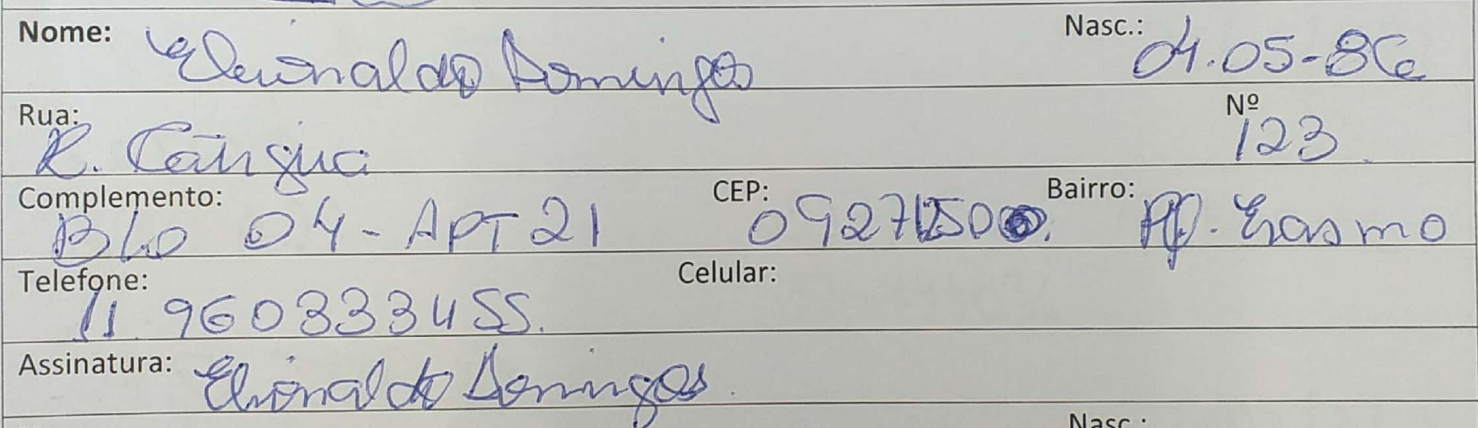 Nome: Elionaldo Domingos Nasc.: 04.05-86
Rua: R. Cangua Nº 123
Complemento: Blo 04 - APT 21 CEP: Bairro: Pq. Erasmo
Telefone: 11 960333455. Celular:
Assinatura: Elionaldo Domingos
Nasc.: